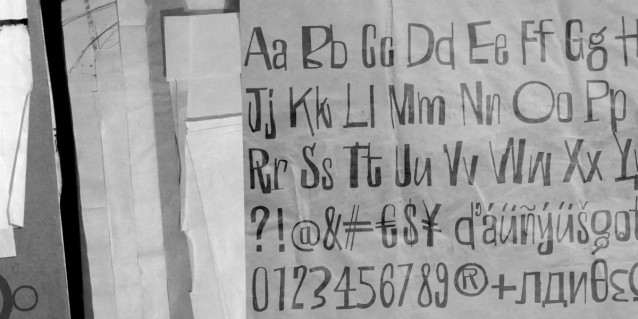 Aa Bb Cc Dd Ee Ff Gg H
Jj Kk Ll Mm Nn Oo Pp
Rr Ss Tt Uu Vv Ww Xx Y
?!@&#€$¥ ďáüñýúšğőt
0123456789®+лдиθες